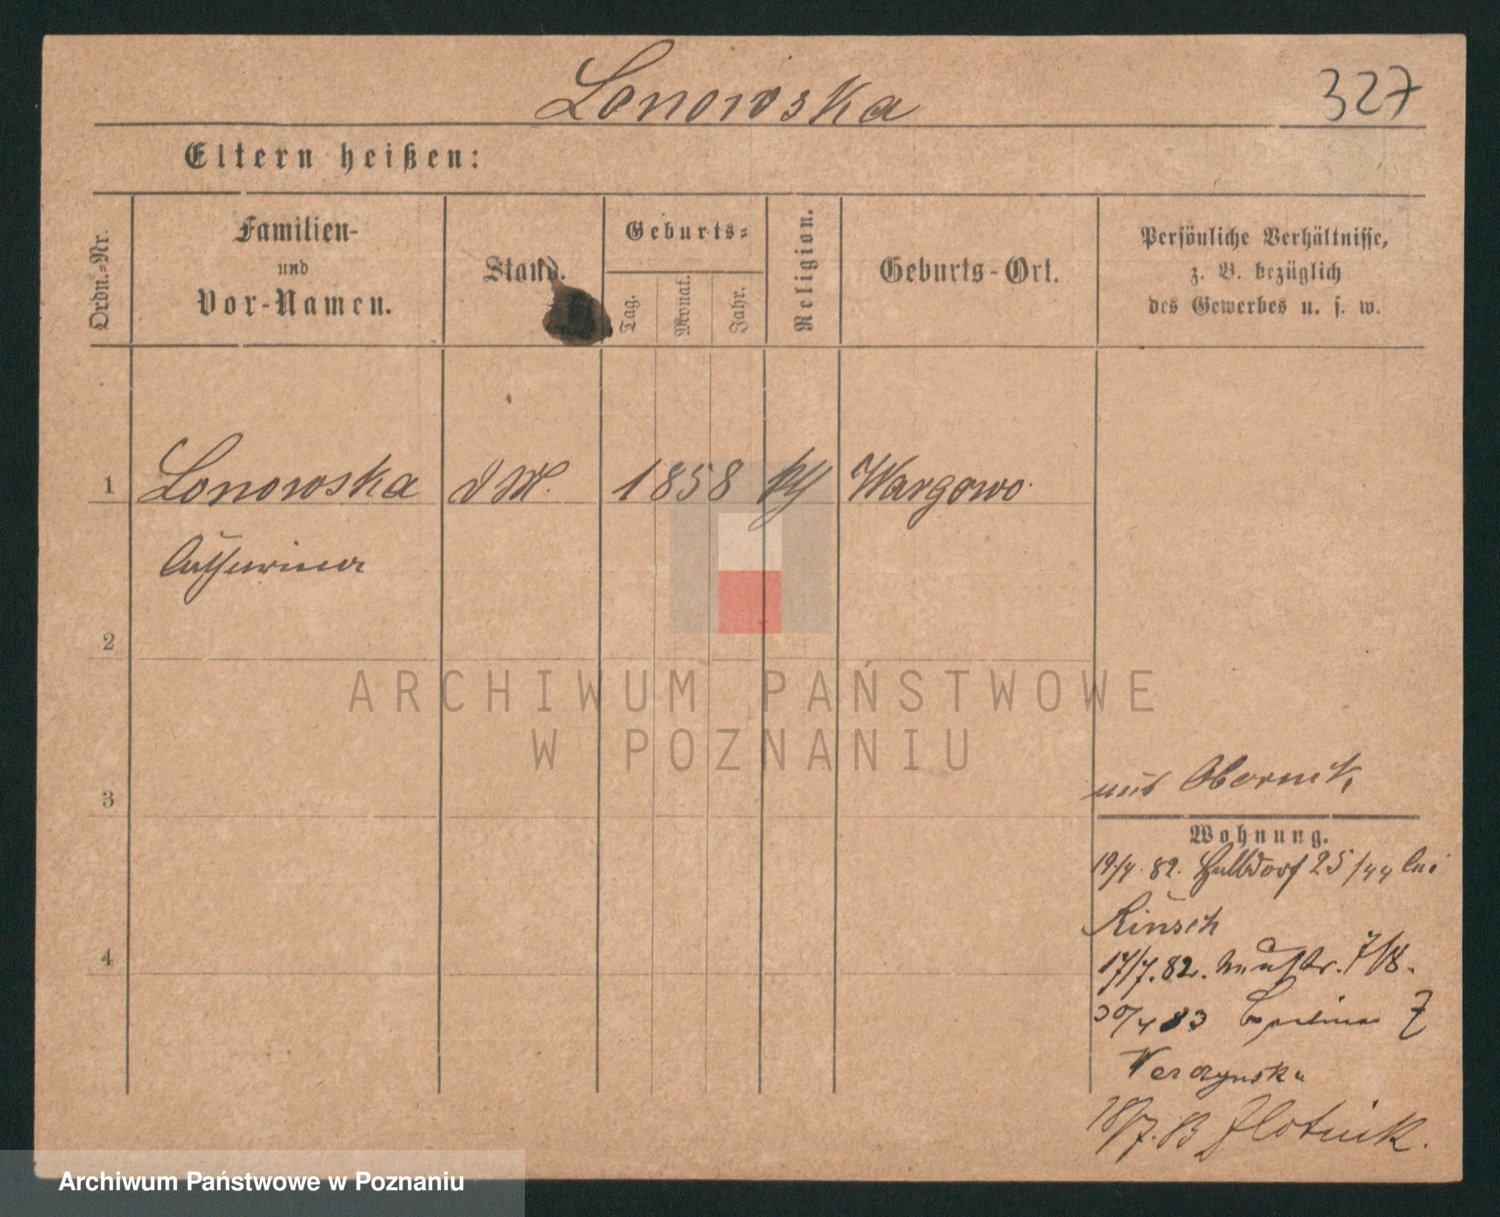 Lonowska
327
Eltern heißen:
Ordn.-Nr.
Familien-
und
Vor-Namen.
Stand.
Geburts-
Tag.
Monat.
Jahr.
Religion.
Geburts-Ort.
Persönliche Verhältnisse,
z. B. bezüglich
des Gewerbes u. s. w.
1
Lonowska
d M.
1858
Wargowo
Catherina
2
ARCHIWUM PAŃSTWOWE
W POZNANIU
3
aus Obornik,
Wohnung.
19/4. 82. Halbdorf 25/44 bei
Rinsch
4
17/7. 82.
7/8.
30/4 83
Werczynska
18/7. 83 Zlotnik.
Archiwum Państwowe w Poznaniu